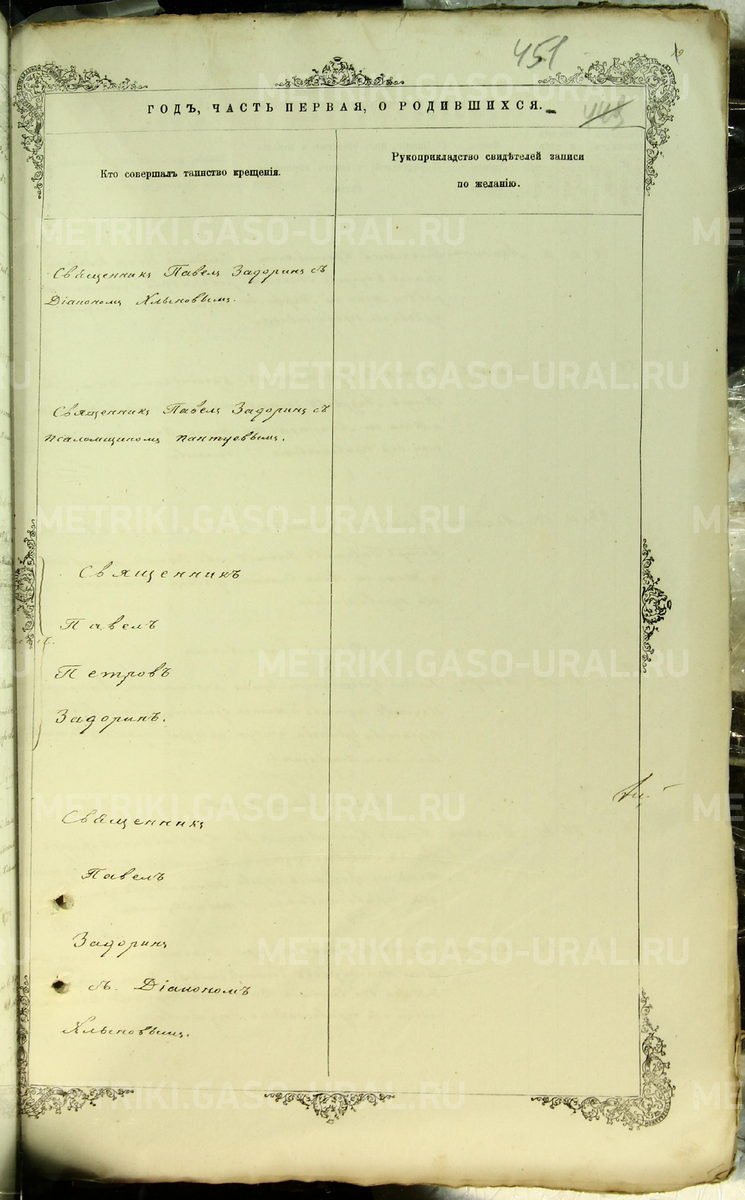 451
ГОДЪ, ЧАСТЬ ПЕРВАЯ, О РОДИВШИХСЯ.
Кто совершалъ таинство крещенія.
Рукоприкладство свидѣтелей записи
по желанію.
Священникъ Павелъ Задоринъ съ
Діакономъ Хлыновымъ.
Священникъ Павелъ Задоринъ съ
псаломщикомъ Пантуевымъ.
Священникъ
Павелъ
Петровъ
Задоринъ.
Священникъ
Павелъ
Задоринъ
съ Діакономъ
Хлыновымъ.
METRIKI.GASO-URAL.RU